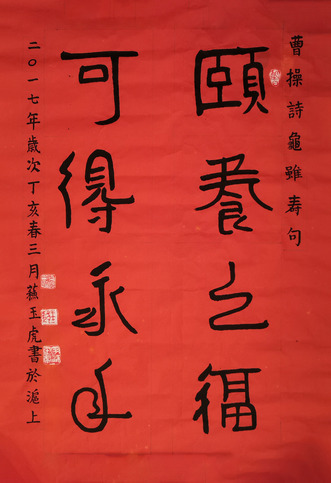 曹操詩龜雖壽句
頤養之福
可得永年
二〇一七年歲次丁亥春三月蘇玉虎書於滬上